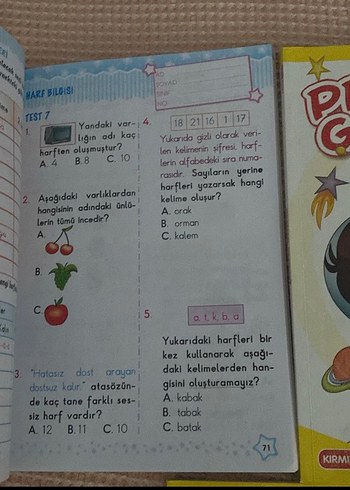 HARF BİLGİSİ
TEST 7
1. Yandaki var-
lığın adı kaç
harften oluşmuştur?
A. 4 B. 8 C. 10
2. Aşağıdaki varlıklardan
hangisinin adındaki ünlü-
lerin tümü incedir?
A.
B.
C.
3. "Hatasız dost arayan
dostsuz kalır." atasözün-
de kaç tane farklı ses-
siz harf vardır?
A. 12 B. 11 C. 10
4. 18 21 16 1 17
Yukarıda gizli olarak veri-
len kelimenin şifresi, harf-
lerin alfabedeki sıra numa-
rasıdır. Sayıların yerine
harfleri yazarsak hangi
kelime oluşur?
A. orak
B. orman
C. kalem
5. a, t, k, b, a
Yukarıdaki harfleri bir
kez kullanarak aşağı-
daki kelimelerden han-
gisini oluşturamayız?
A. kabak
B. tabak
C. batak
71